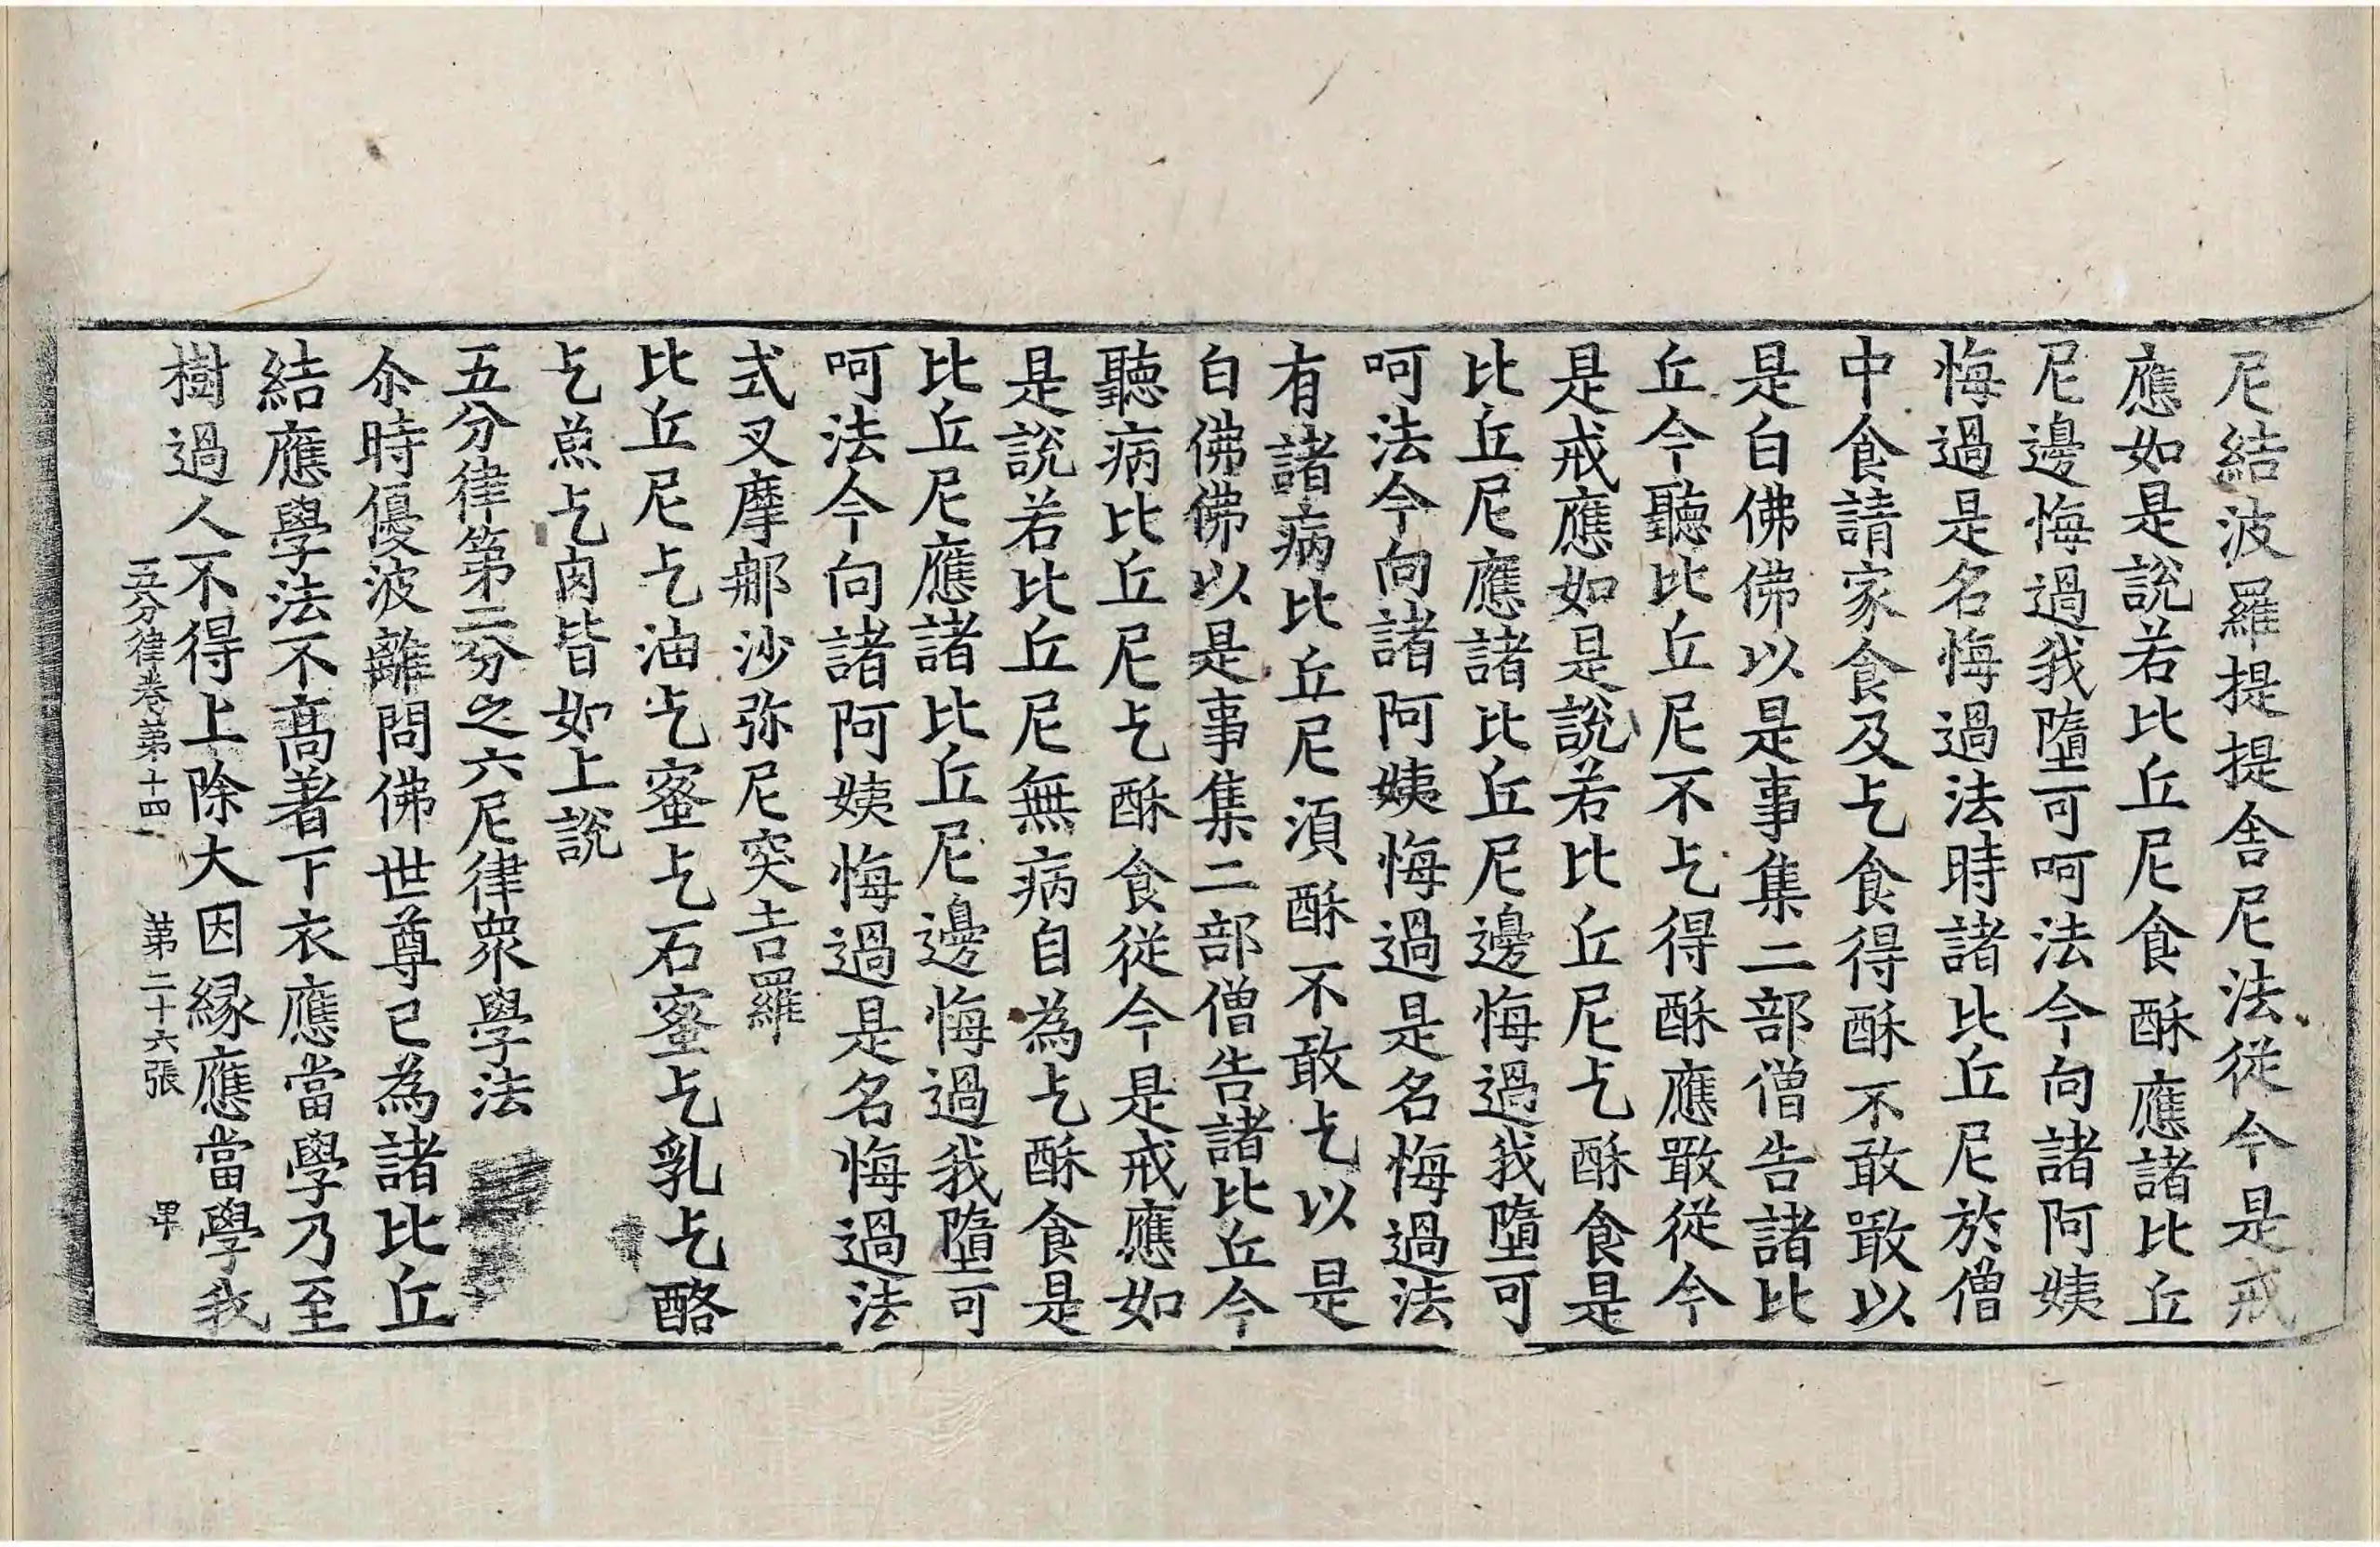 尼結波羅提提舍尼法従今是戒
應如是說若比丘尼食酥應諸比丘
尼邊悔過我墮可呵法今向諸阿姨
悔過是名悔過法時諸比丘尼於僧
中食請家食及乞食得酥不敢噉以
是白佛佛以是事集二部僧告諸比
丘今聽比丘尼不乞得酥應噉従今
是戒應如是說若比丘尼乞酥食是
比丘尼應諸比丘尼邊悔過我墮可
呵法今向諸阿姨悔過是名悔過法
有諸病比丘尼湏酥不敢乞以是
白佛佛以是事集二部僧告諸比丘今
聽病比丘尼乞酥食従今是戒應如
是說若比丘尼無病自為乞酥食是
比丘尼應諸比丘尼邊悔過我墮可
呵法今向諸阿姨悔過是名悔過法
式叉摩那沙弥尼突吉羅
比丘尼乞油乞蜜乞石蜜乞乳乞酪
乞魚乞肉皆如上說
五分律第二分之六尼律衆學法
尒時優波離問佛世尊已為諸比丘
結應學法不髙著下衣應當學乃至
樹過人不得上除大因緣應當學我
五分律卷第十四 第二十六張 甲